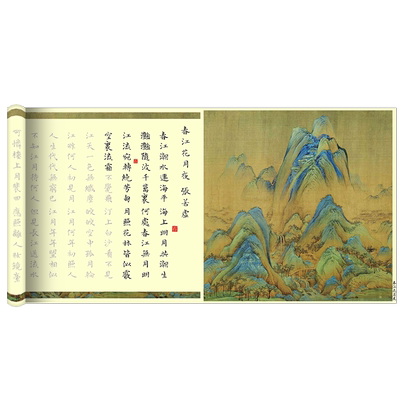 春江花月夜 張若虛
春江潮水連海平 海上明月共潮生
灩灩隨波千萬裏 何處春江無月明
江流宛轉繞芳甸 月照花林皆似霰
空裏流霜不覺飛 汀上白沙看不見
江天一色無纖塵 皎皎空中孤月輪
江畔何人初見月 江月何年初照人
人生代代無窮已 江月年年望相似
不知江月待何人 但見長江送流水
可憐樓上月裴回 應照離人妝鏡臺